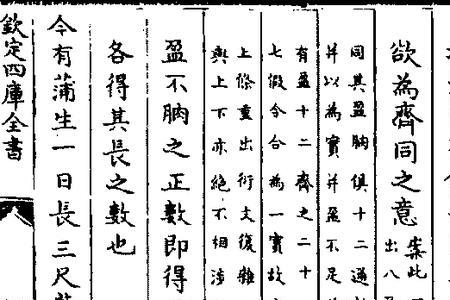 欲為齊同之意案此出八
同其盈朒俱十二通
并以為實并盈不足
有盈十二齊之二十
七假令合為一實故
上條重出衍文復雜
與上下亦絕不相涉
盈不朒之正數即得
各得其長之數也
今有蒲生一日長三尺
欽定四庫全書